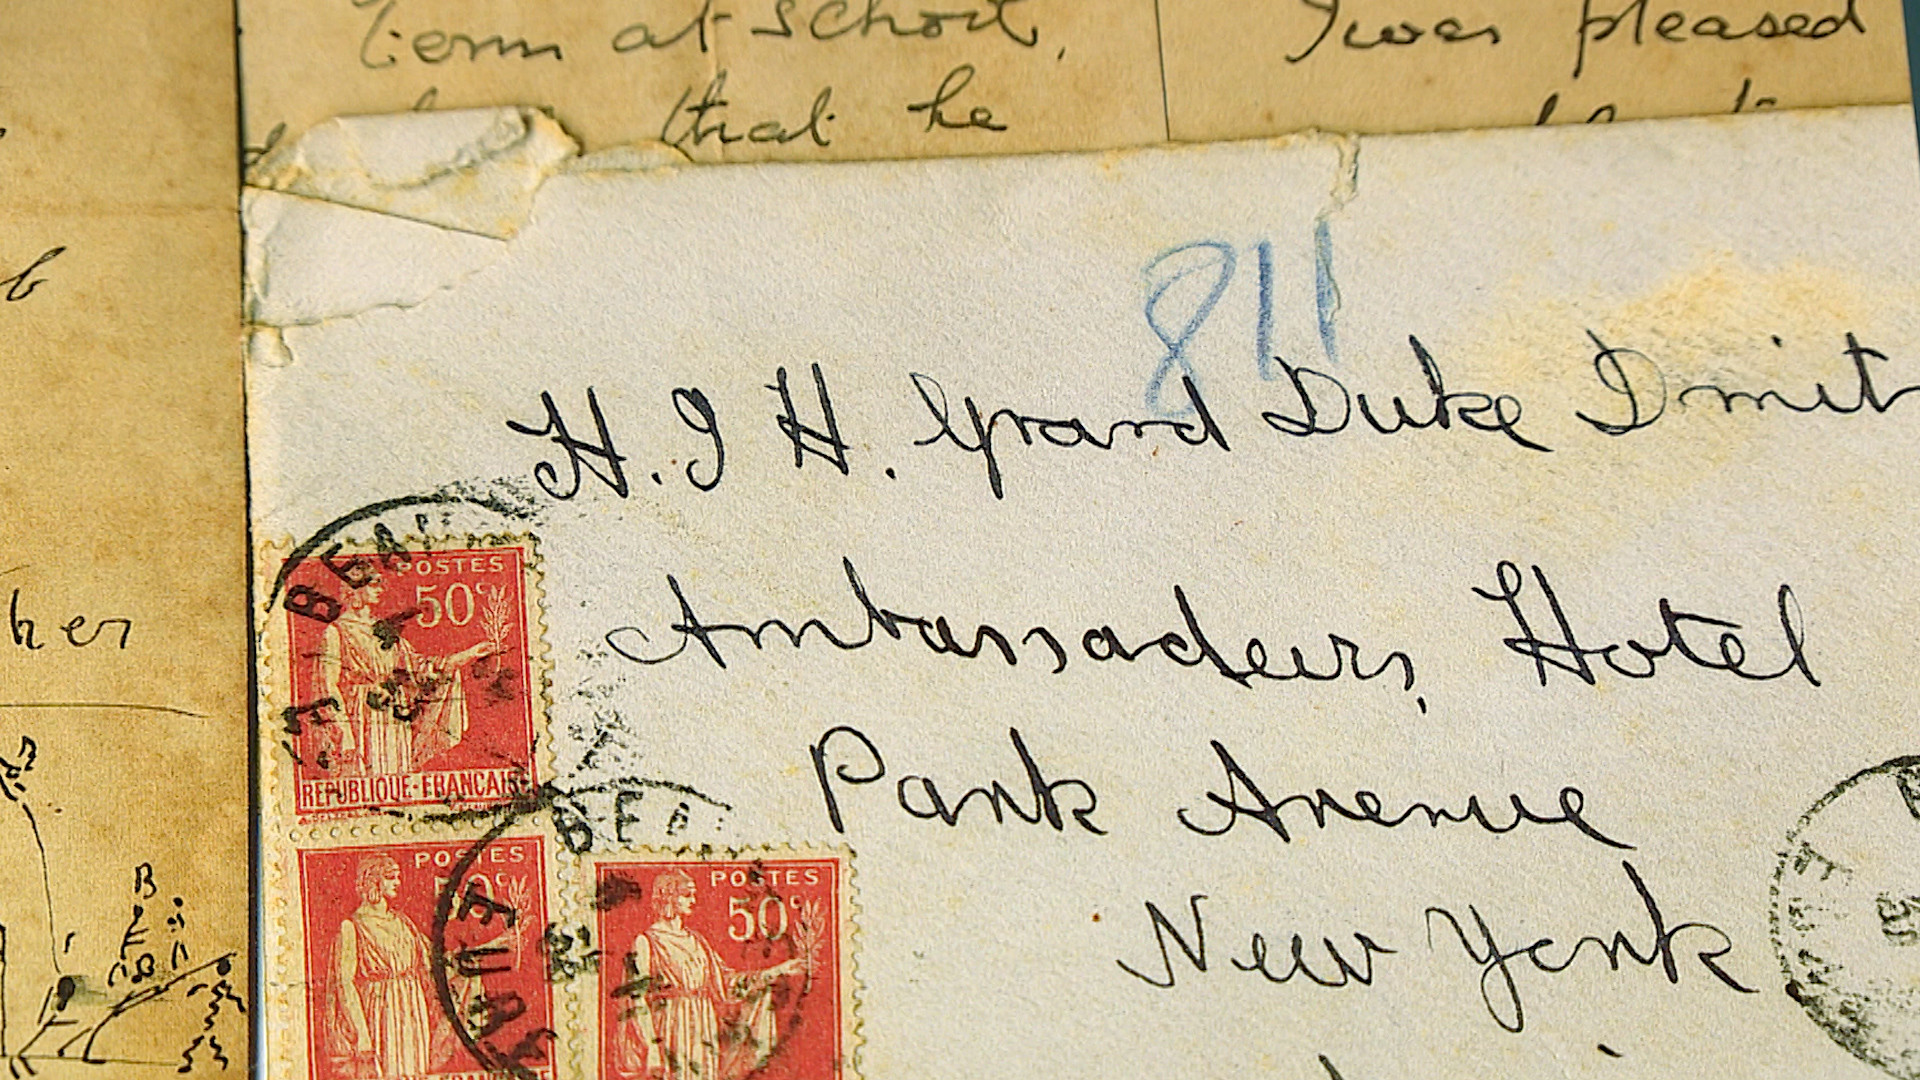 term at school,
that he
I was pleased
her
B
811
H. I H. Grand Duke Dmit
Ambassadeurs, Hotel
Park Avenue
New York
POSTES
50c
REPUBLIQUE·FRANCAISE
POSTES
50c
POSTES
50c
BEA
BEA